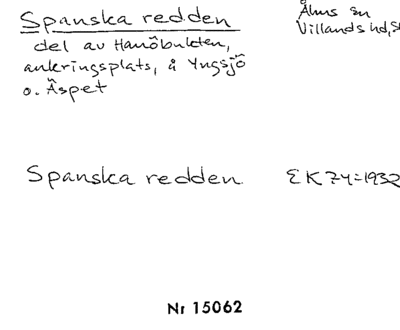 Spanska redden
Åhus sn
Villands hd, Sk
del av Hanöbukten,
ankringsplats, å Yngsjö
o. Äspet
Spanska redden EK74=1932
Nr 15062